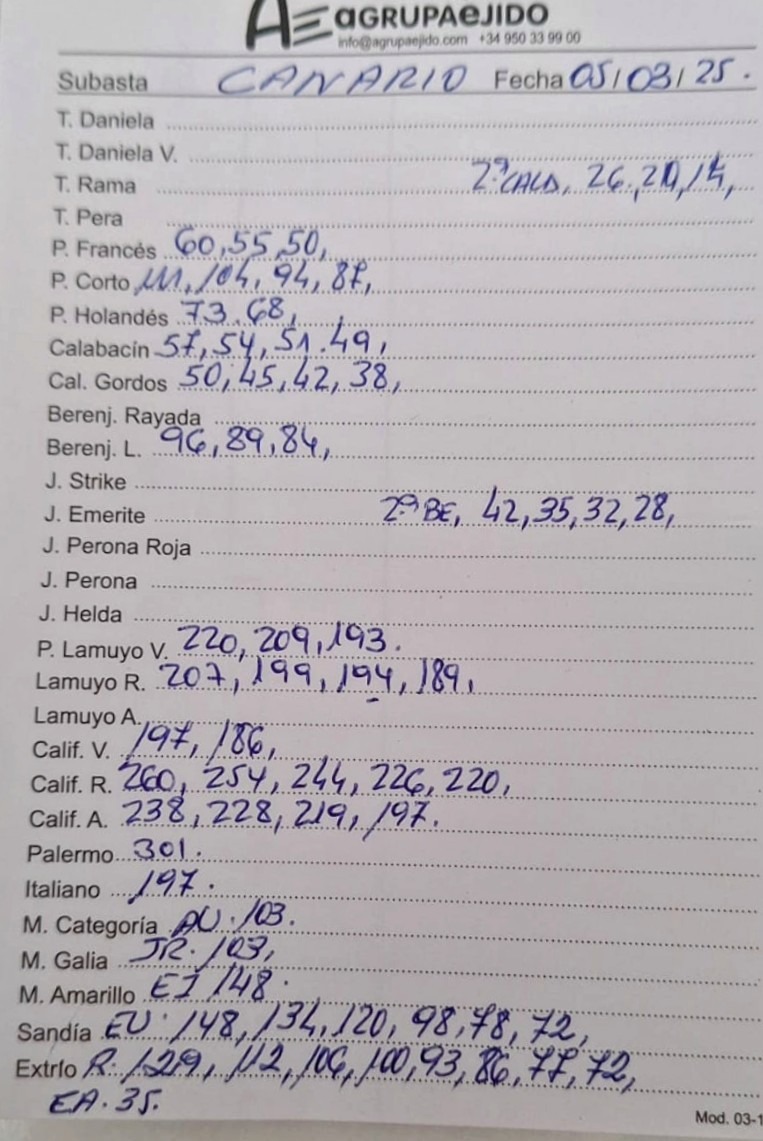 AE aGRUPAeJIDO
info@agrupaejido.com +34 950 33 99 00
Subasta CANARIO Fecha 05/03/25.
T. Daniela
T. Daniela V.
T. Rama 2ª CALD, 26, 20, 14,
T. Pera
P. Francés 60, 55, 50,
P. Corto 111, 104, 94, 87,
P. Holandés 73. 68,
Calabacín 57, 54, 51. 49,
Cal. Gordos 50, 45, 42, 38,
Berenj. Rayada
Berenj. L. 96, 89, 84,
J. Strike
J. Emerite 2ª BE, 42, 35, 32, 28,
J. Perona Roja
J. Perona
J. Helda
P. Lamuyo V. 220, 209, 193.
Lamuyo R. 207, 199, 194, 189,
Lamuyo A.
Calif. V. 197, 186,
Calif. R. 260, 254, 244, 226, 220,
Calif. A. 238, 228, 219, 197.
Palermo 301.
Italiano 197.
M. Categoría AU. 103.
M. Galia JR. 103,
M. Amarillo EJ 148.
Sandía EU. 148, 134, 120, 98, 78, 72,
Extrío R. 129, 112, 106, 100, 93, 86, 77, 72,
EA. 35.
Mod. 03-1